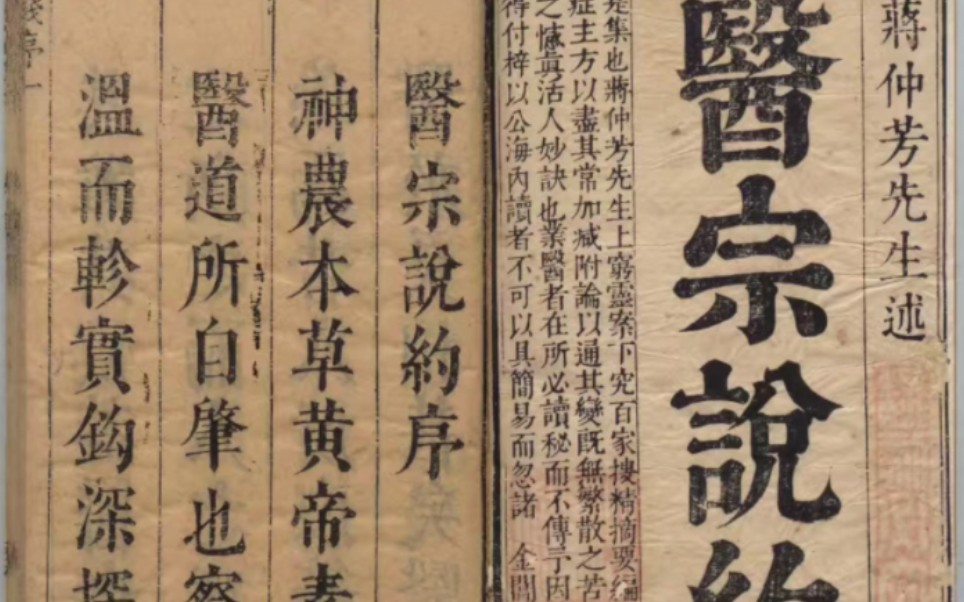 蔣仲芳先生述
醫宗說約
是集也蔣仲芳先生上窮靈素下究百家搜精摘要編
症主方以盡其常加减附論以通其變既無繁散之苦
之慷眞活人妙訣也業醫者在所必讀秘而不傳予因
得付梓以公海內讀者不可以其簡易而忽諸 金閶
醫宗說約序
神農本草黃帝素
醫道所自肇也察
溫而軫實鈎深探
序一